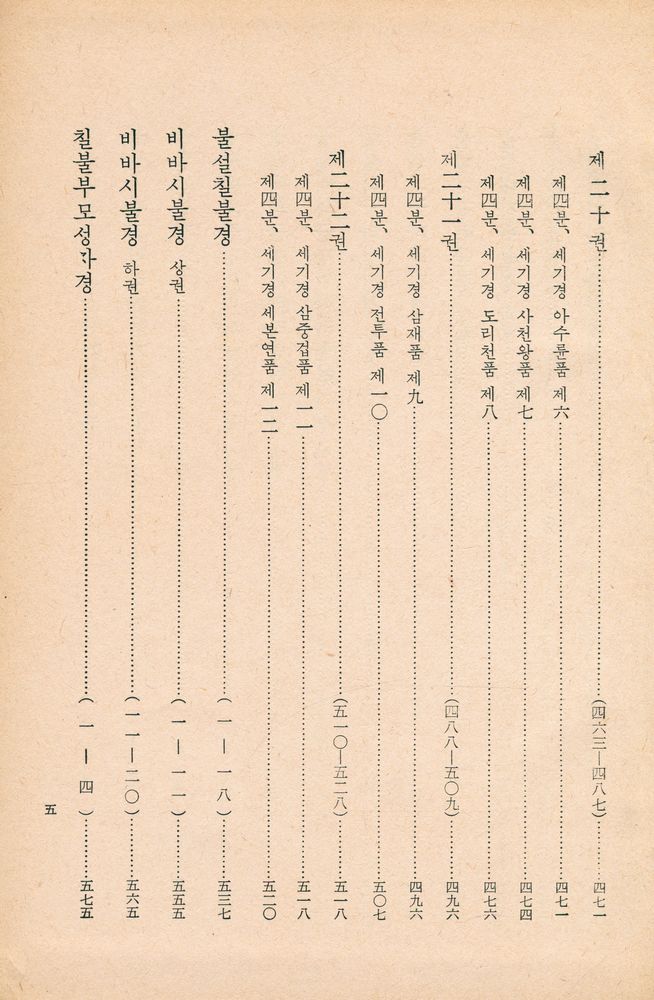 제二十권……(四六三—四八七)……四七一
제四분、세기경 아수륜품 제六……四七一
제四분、세기경 사천왕품 제七……四七四
제四분、세기경 도리천품 제八……四七六
제二十一권……(四八八—五〇九)……四九六
제四분、세기경 삼재품 제九……四九六
제四분、세기경 전투품 제一〇……五〇七
제二十二권……(五一〇—五二八)……五一八
제四분、세기경 삼중겁품 제一一……五一八
제四분、세기경 세본연품 제一二……五二〇
불설칠불경……(一—一八)……五三七
비바시불경 상권……(一—一一)……五五五
비바시불경 하권……(一一—二〇)……五六五
칠불부모성자경……(一—四)……五七五
五